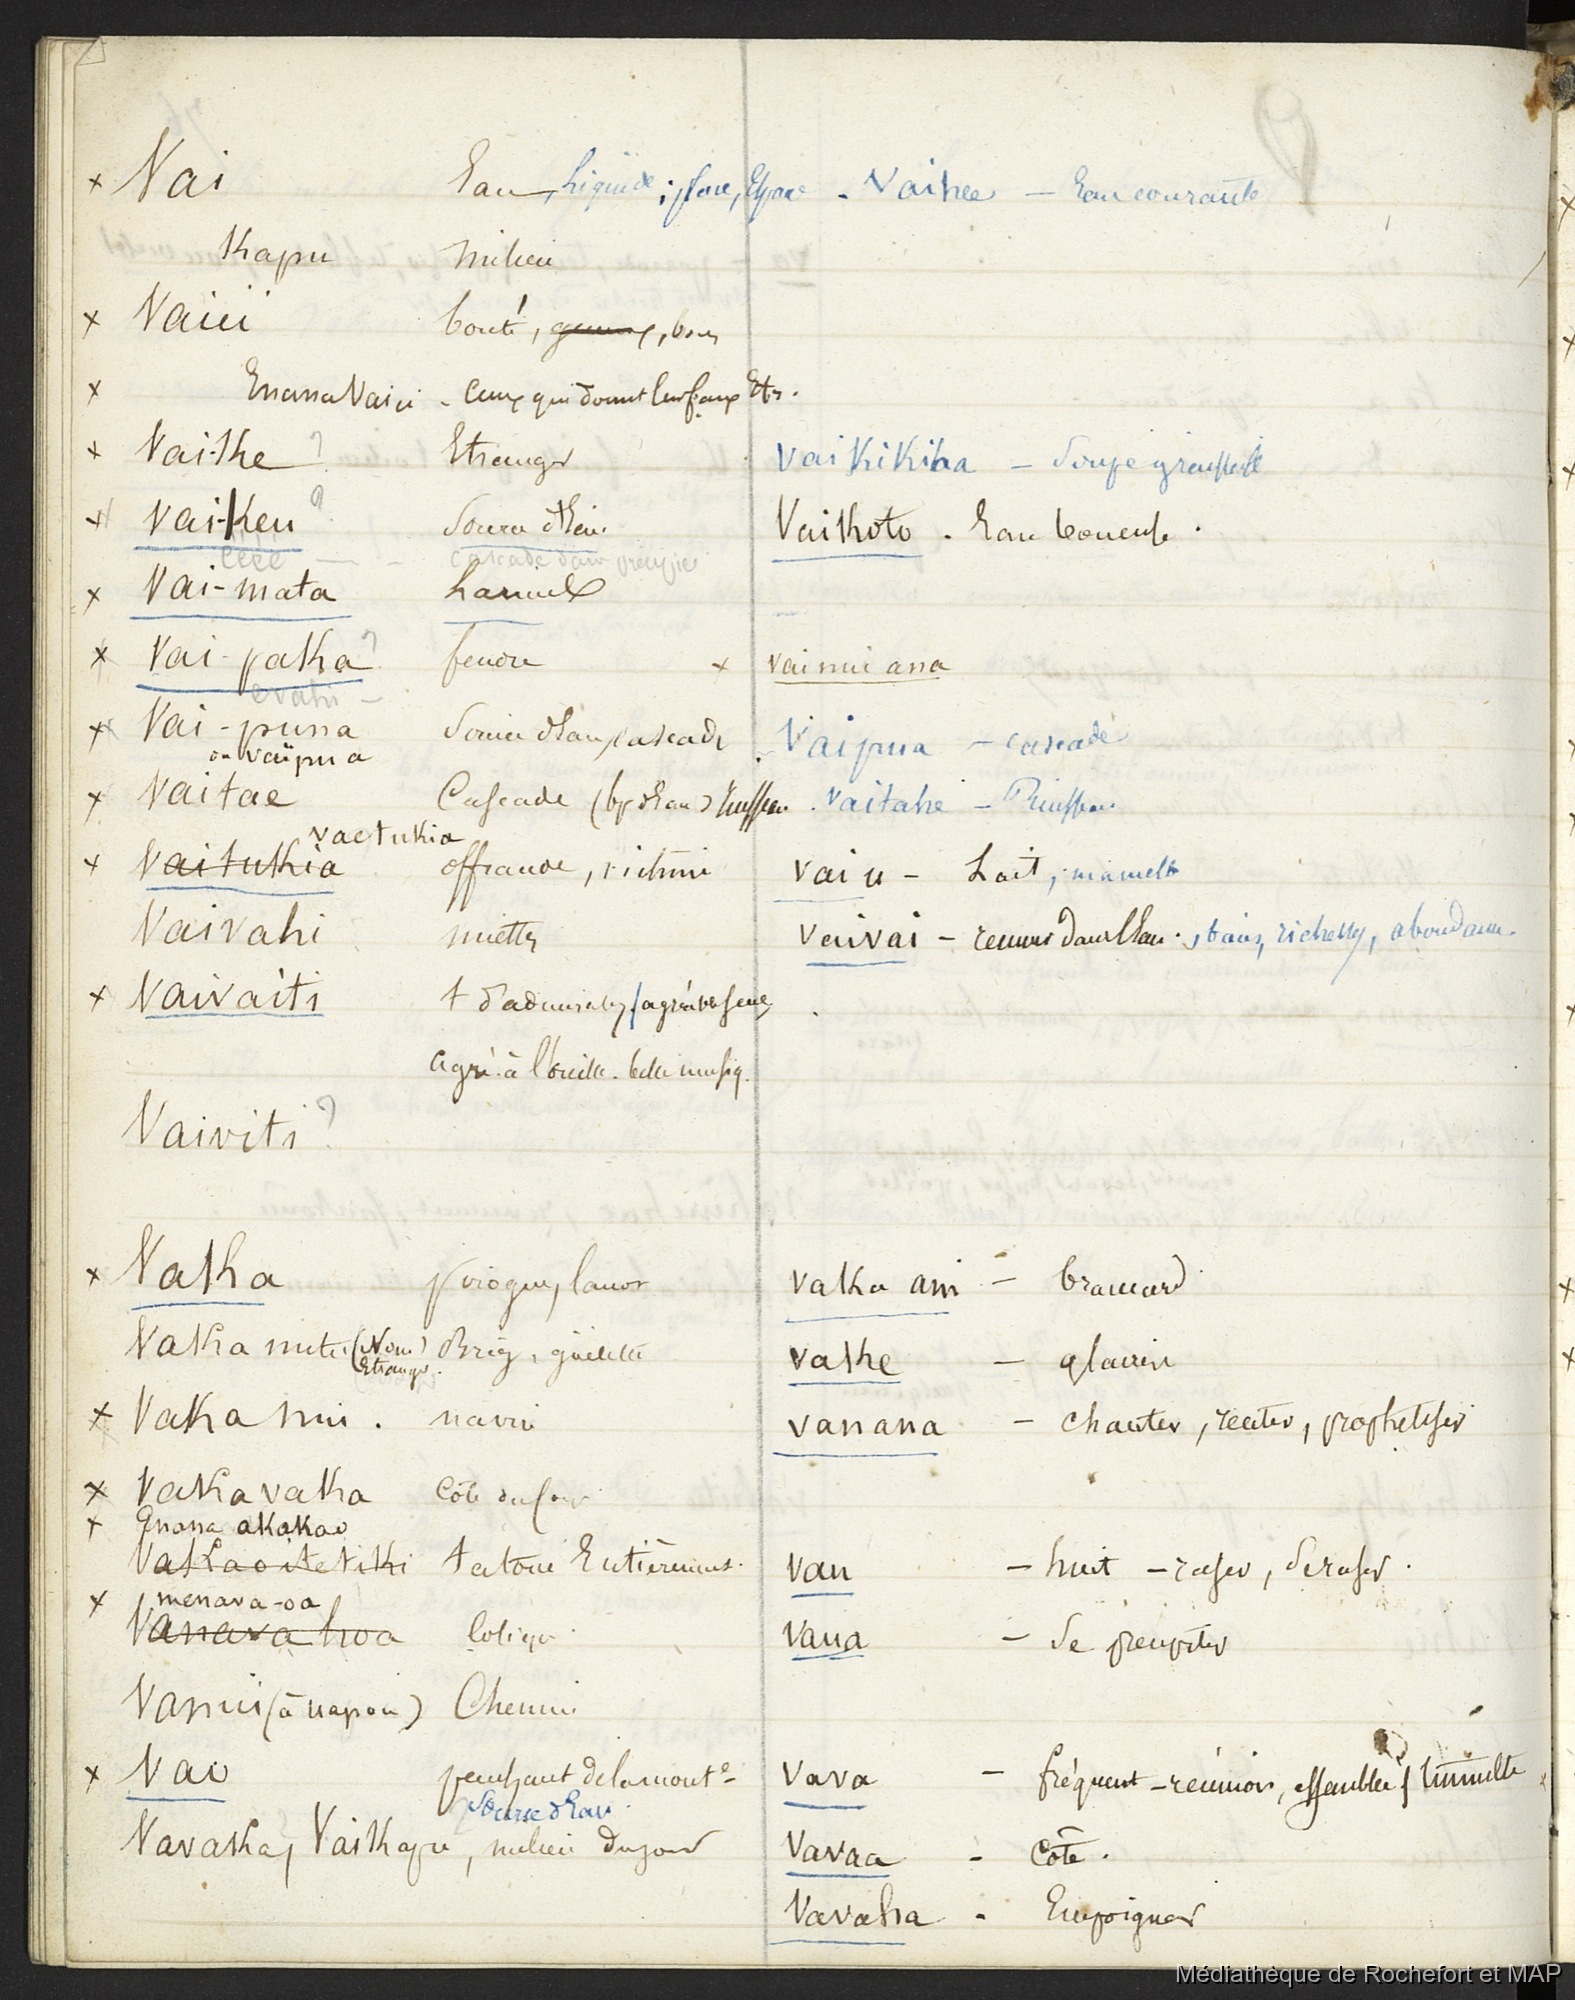 x Vai Eau, liquide; - Vaihee - Eau courante
Kapu milieu
x Vaiei bonté, bon
x Enana Vaiei - Ceux qui Etr.
x Vai-Ke ? Etranger Vaikikiha - Soupe
x Vai-Keu ? Source d'Eau Vaikoto - Eau boueuse.
cascade dans précipice
x Vai-mata Larmes
x Vai-paka ? fendre x vai mui ana
evahi -
x Vai-puna Source d'Eau, cascade Vaipua - cascade
ou vaiipua
x Vaitae Cascade (bp d'Eau) ruisseau - Vaitahe - Ruisseau
vaetukia
x Vaitukia offrande, victime vai u - Lait, mamelle
Vaivahi miettes Vaivai - remuer dans l'Eau., bains, richesses, abondance.
x Vaivaiti agréable
agré. à l'oreille. belle musiq.
Vaiviti ?
x Vaka pirogue, canot vaka ani - brancard
Vaka nute (Nom Etranger.) Brig, goëlette vake - glaires
x Vaka nui. navire vanana - chanter, reciter, prophetiser
x Vakavaka Côté
x Enana akakao
Vakaoitetiki tatoué Entièrement. vau - huit - raser, se raser.
x menava-oa
Vanava hoa Colique vaua - Se precipiter
Vanui (à uapou) Chemin
x Vao penchant de la montᵉ - vava - fréquent - réunion, assemblée, tumulte
Source d'Eau.
Vavaka, Vaikapu, milieu du jour Vavaa - Côte.
Vavaha - Empoigner
Médiathèque de Rochefort et MAP